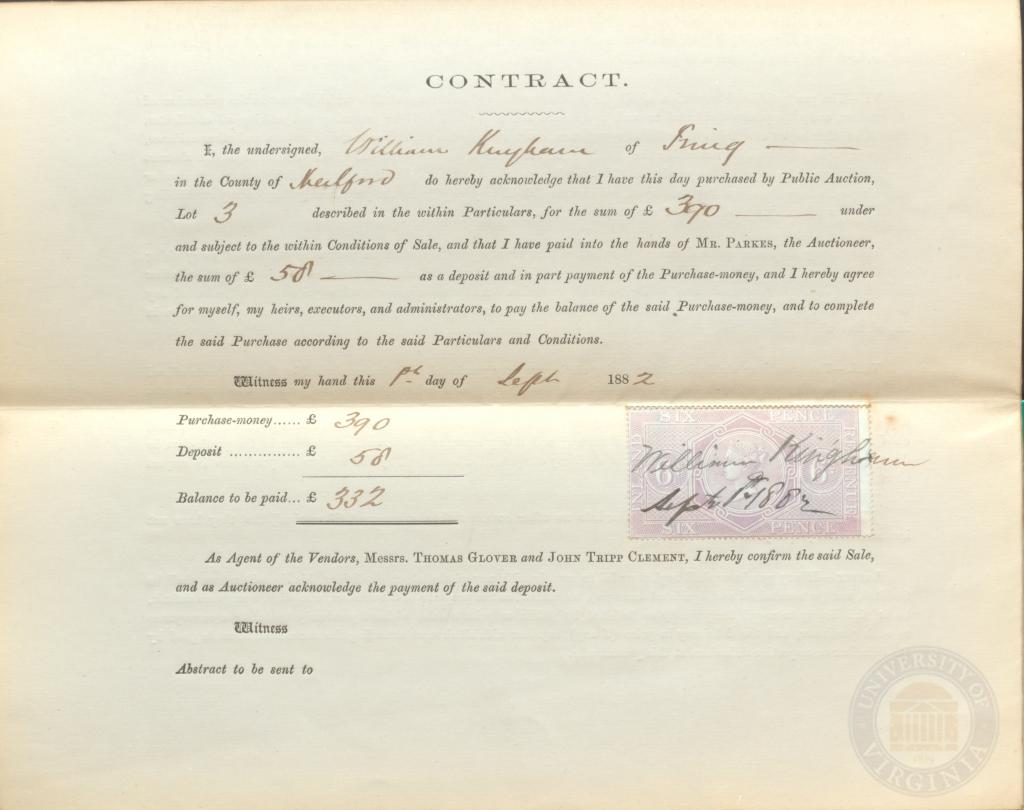 CONTRACT.
I, the undersigned, William Kingham of Tring
in the County of Hertford do hereby acknowledge that I have this day purchased by Public Auction,
Lot 3 described in the within Particulars, for the sum of £ 390 under
and subject to the within Conditions of Sale, and that I have paid into the hands of MR. PARKES, the Auctioneer,
the sum of £ 58 as a deposit and in part payment of the Purchase-money, and I hereby agree
for myself, my heirs, executors, and administrators, to pay the balance of the said Purchase-money, and to complete
the said Purchase according to the said Particulars and Conditions.
Witness my hand this 1st day of Sept 1882
Purchase-money...... £ 390
Deposit ............... £ 58
Balance to be paid... £ 332
SIX PENCE
INLAND
REVENUE
6 6
William Kingham
Sept 1st 1882
SIX PENCE
As Agent of the Vendors, Messrs. THOMAS GLOVER and JOHN TRIPP CLEMENT, I hereby confirm the said Sale,
and as Auctioneer acknowledge the payment of the said deposit.
Witness
Abstract to be sent to
UNIVERSITY OF VIRGINIA
1819